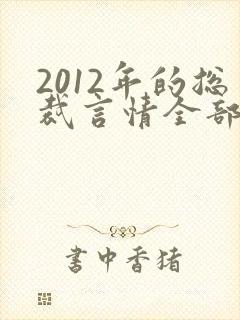 2012年的总
裁言情全部
書中香猪